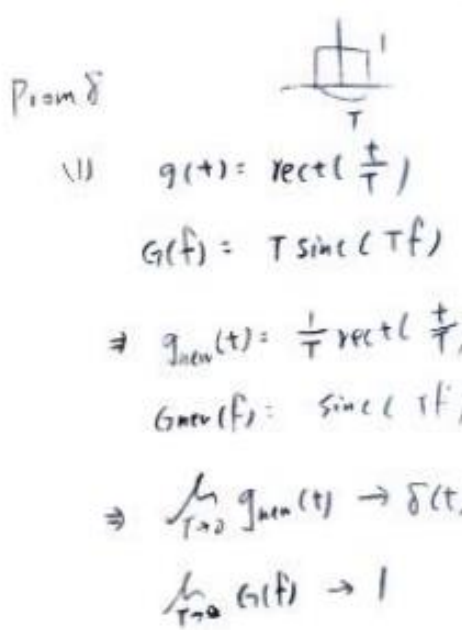 1
T
From δ
(1) g(t) = rect(t/T)
G(f) = T sinc(Tf)
⇒ g_new(t) = 1/T rect(t/T)
G_new(f) = sinc(Tf)
⇒ lim T→0 g_new(t) → δ(t)
lim T→0 G(f) → 1